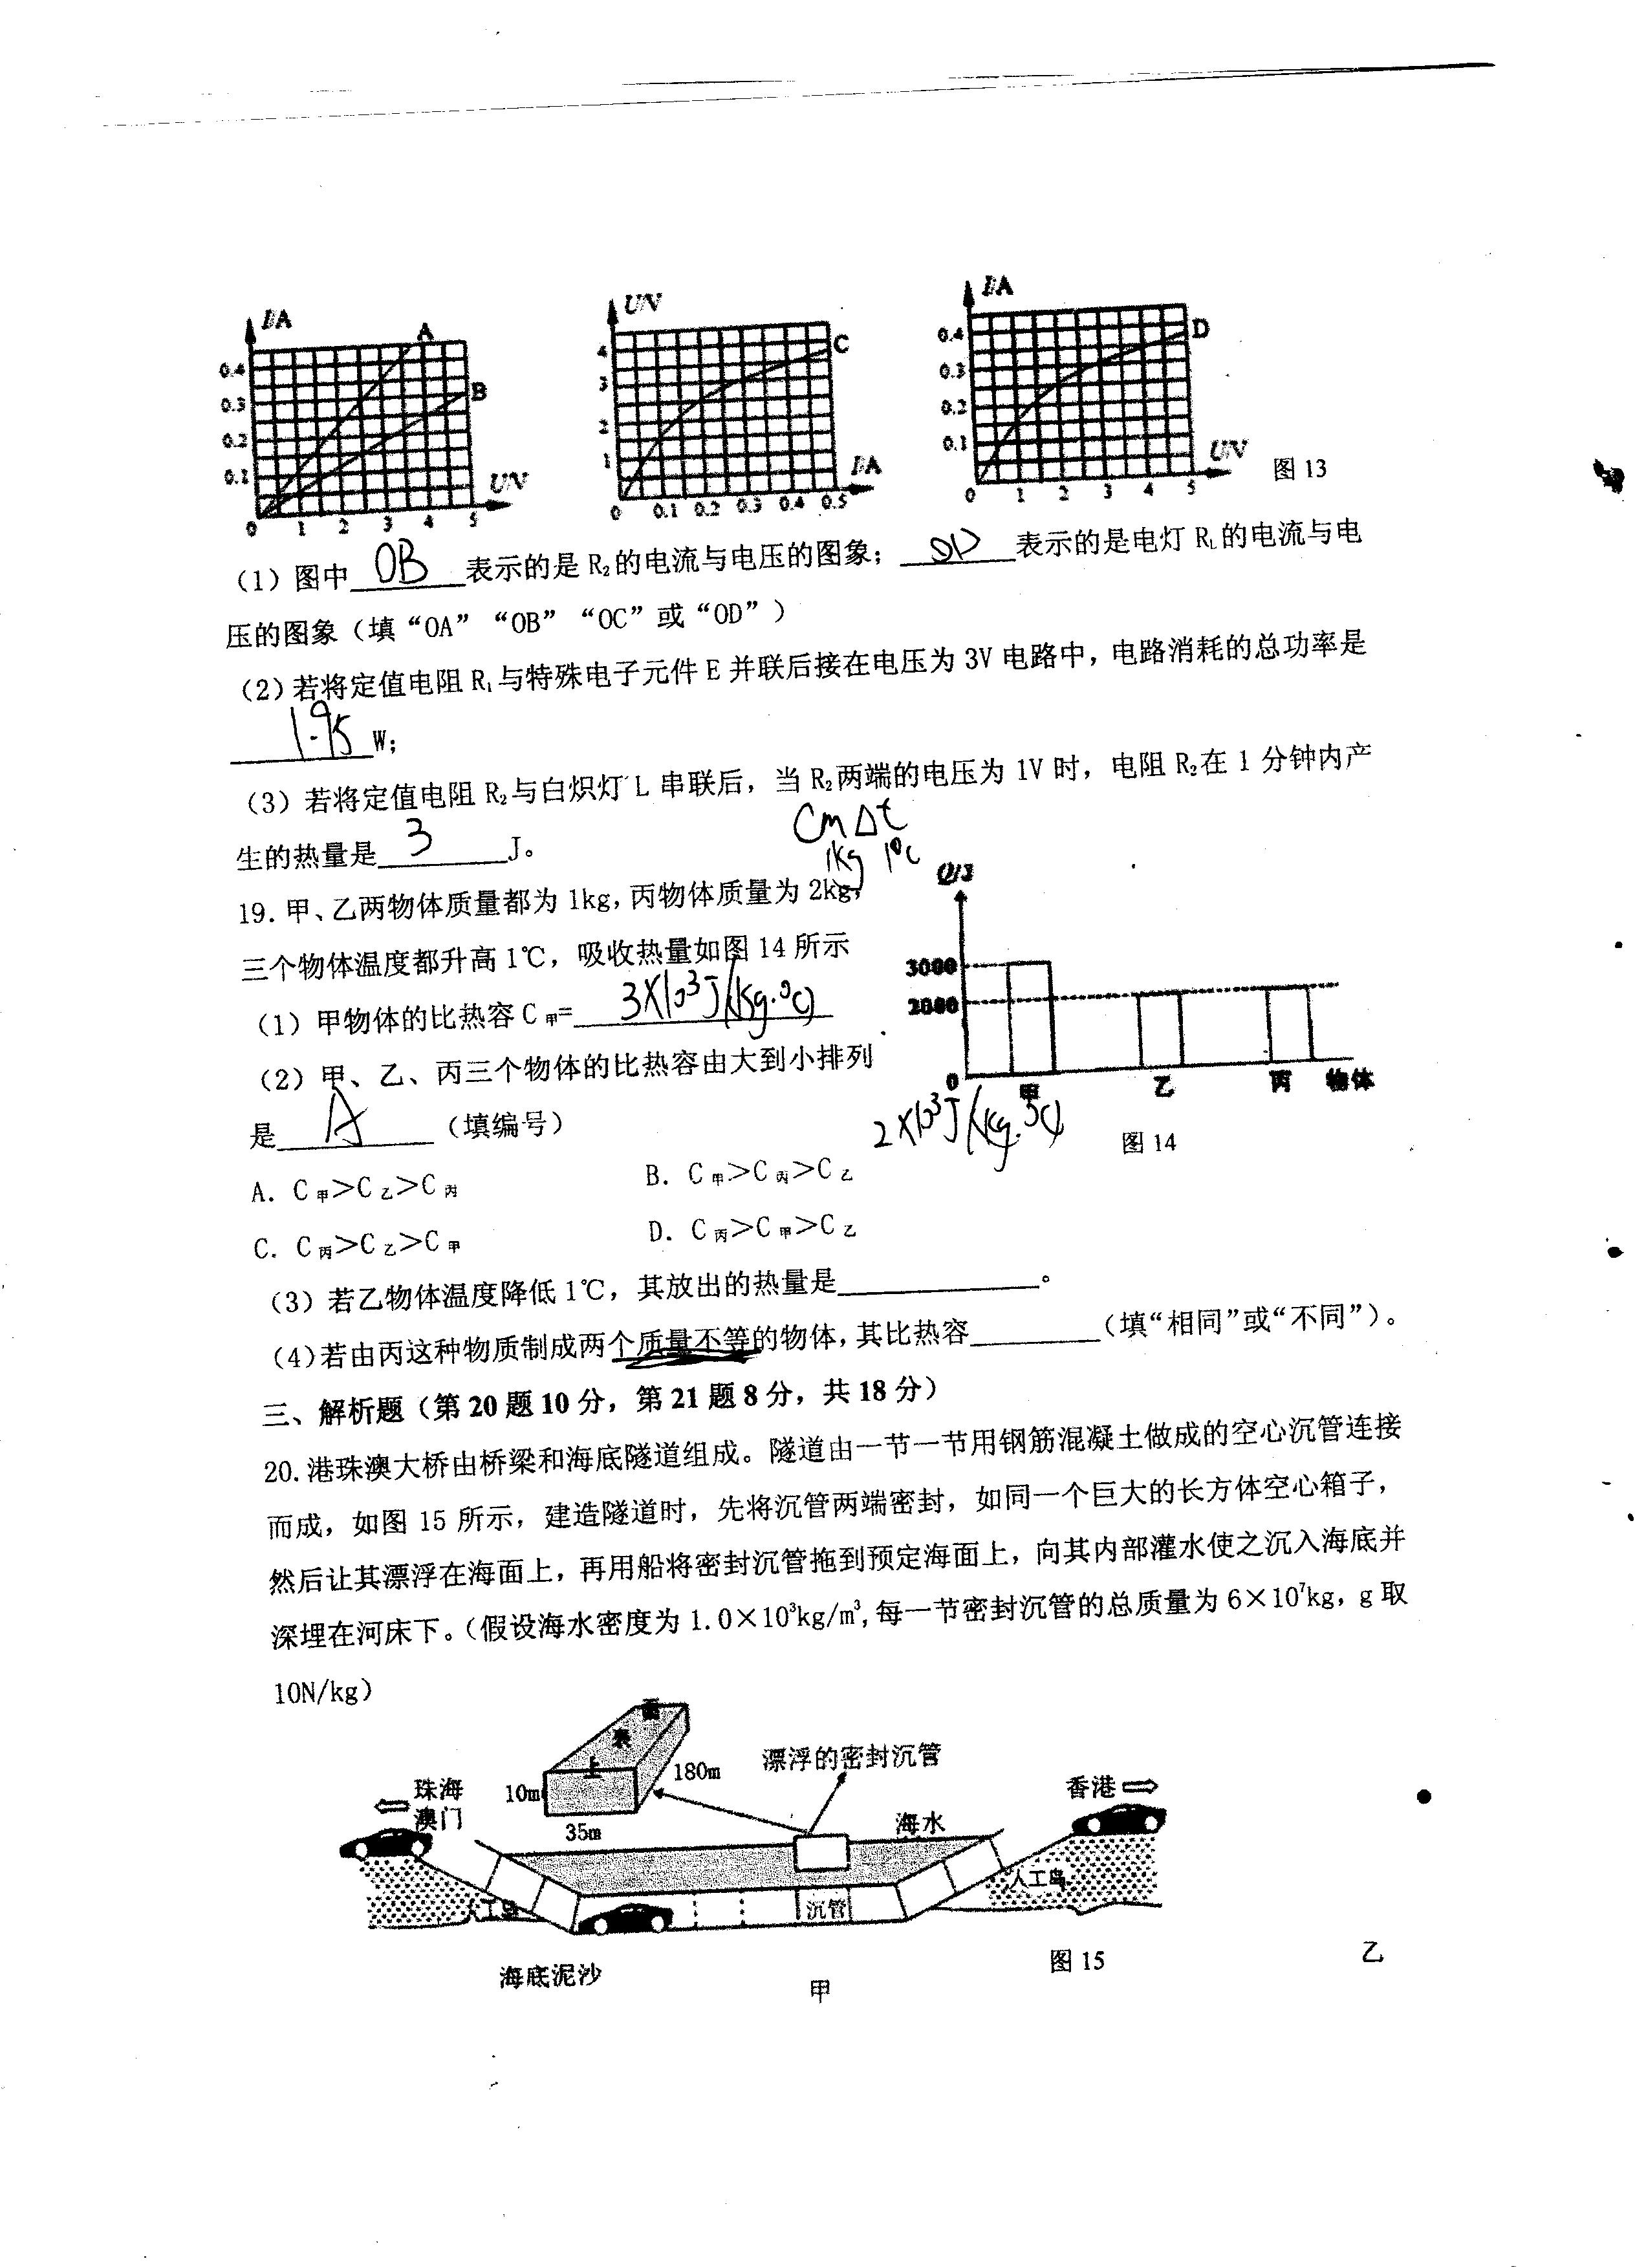 I/A
A
B
0.4
0.3
0.2
0.1
0 1 2 3 4 5
U/V
U/V
C
4
3
2
1
0 0.1 0.2 0.3 0.4 0.5
I/A
I/A
D
0.4
0.3
0.2
0.1
0 1 2 3 4 5
U/V
图 13
(1) 图中 OB 表示的是 R₂的电流与电压的图象; OD 表示的是电灯 R_L的电流与电
压的图象(填“OA”“OB”“OC”或“OD”)
(2)若将定值电阻 R₁与特殊电子元件 E 并联后接在电压为 3V 电路中,电路消耗的总功率是
1.95 W;
(3)若将定值电阻 R₂与白炽灯 L 串联后,当 R₂两端的电压为 1V 时,电阻 R₂在 1 分钟内产
生的热量是 3 J。
Cm△t
1kg 1℃
19. 甲、乙两物体质量都为 1kg,丙物体质量为 2kg,
三个物体温度都升高 1℃,吸收热量如图 14 所示
(1)甲物体的比热容 C甲= 3×10³J/(kg·℃)
(2)甲、乙、丙三个物体的比热容由大到小排列
是 A (填编号)
Q/J
3000
2000
0 甲 乙 丙 物体
2×10³J/(kg·℃)
图 14
A. C甲>C乙>C丙 B. C甲>C丙>C乙
C. C丙>C乙>C甲 D. C丙>C甲>C乙
(3)若乙物体温度降低 1℃,其放出的热量是________。
(4)若由丙这种物质制成两个质量不等的物体,其比热容________(填“相同”或“不同”)。
三、解析题(第 20 题 10 分,第 21 题 8 分,共 18 分)
20. 港珠澳大桥由桥梁和海底隧道组成。隧道由一节一节用钢筋混凝土做成的空心沉管连接
而成,如图 15 所示,建造隧道时,先将沉管两端密封,如同一个巨大的长方体空心箱子,
然后让其漂浮在海面上,再用船将密封沉管拖到预定海面上,向其内部灌水使之沉入海底并
深埋在河床下。(假设海水密度为 1.0×10³kg/m³,每一节密封沉管的总质量为 6×10⁷kg,g 取
10N/kg)
上表面
10m
180m
35m
漂浮的密封沉管
珠海
澳门
香港
海水
人工岛
人工岛
沉管
海底泥沙
甲
图 15
乙